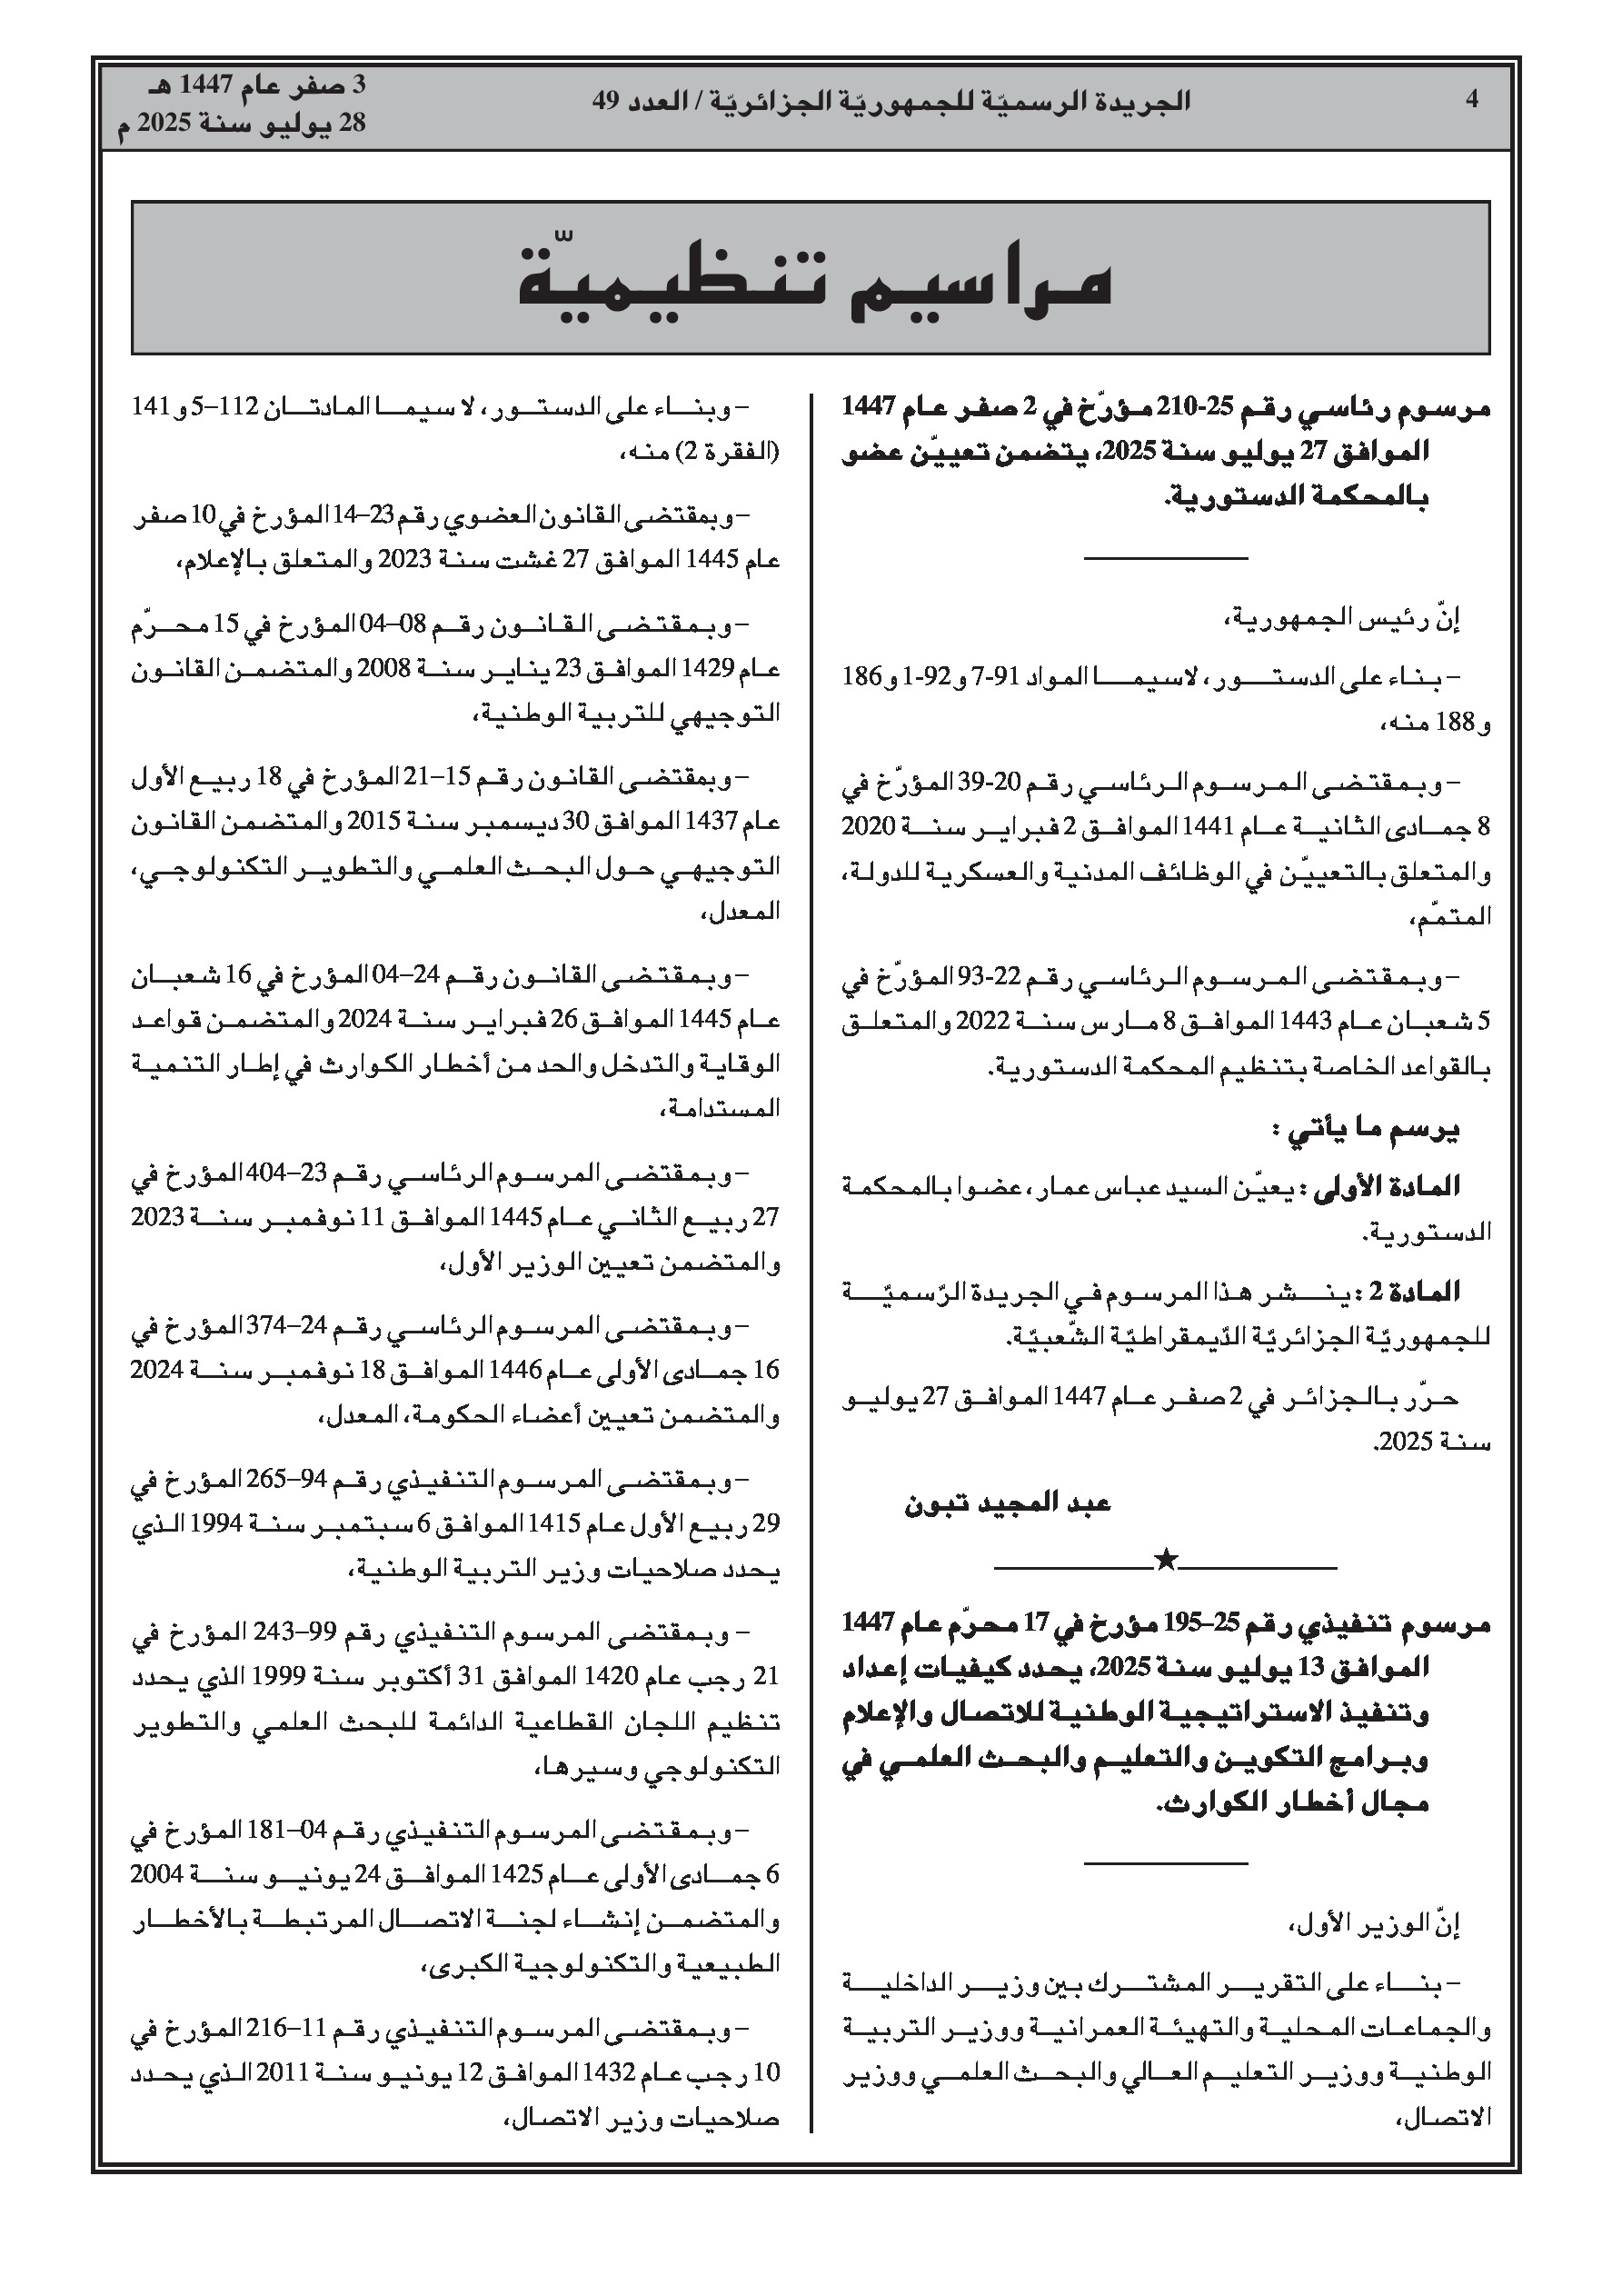 4
الجريدة الرسميّة للجمهوريّة الجزائريّة / العدد 49
3 صفر عام 1447 هـ
28 يوليو سنة 2025 م
مراسيم تنظيميّة
مرسوم رئاسي رقم 25-210 مؤرّخ في 2 صفر عام 1447
الموافق 27 يوليو سنة 2025، يتضمن تعييّن عضو
بالمحكمة الدستورية.
إنّ رئيس الجمهورية،
– بناء على الدستور، لاسيما المواد 91-7 و92-1 و186
و188 منه،
– وبمقتضى المرسوم الرئاسي رقم 20-39 المؤرّخ في
8 جمادى الثانية عام 1441 الموافق 2 فبراير سنة 2020
والمتعلق بالتعييّن في الوظائف المدنية والعسكرية للدولة،
المتمّم،
– وبمقتضى المرسوم الرئاسي رقم 22-93 المؤرّخ في
5 شعبان عام 1443 الموافق 8 مارس سنة 2022 والمتعلق
بالقواعد الخاصة بتنظيم المحكمة الدستورية.
يرسم ما يأتي :
المادة الأولى : يعيّن السيد عباس عمار، عضوا بالمحكمة
الدستورية.
المادة 2 : ينشر هذا المرسوم في الجريدة الرّسميّة
للجمهوريّة الجزائريّة الدّيمقراطيّة الشّعبيّة.
حرّر بالجزائر في 2 صفر عام 1447 الموافق 27 يوليو
سنة 2025.
عبد المجيد تبون
مرسوم تنفيذي رقم 25–195 مؤرخ في 17 محرّم عام 1447
الموافق 13 يوليو سنة 2025، يحدد كيفيات إعداد
وتنفيذ الاستراتيجية الوطنية للاتصال والإعلام
وبرامج التكوين والتعليم والبحث العلمي في
مجال أخطار الكوارث.
إنّ الوزير الأول،
– بناء على التقرير المشترك بين وزير الداخلية
والجماعات المحلية والتهيئة العمرانية ووزير التربية
الوطنية ووزير التعليم العالي والبحث العلمي ووزير
الاتصال،
– وبناء على الدستور، لا سيما المادتان 112–5 و141
(الفقرة 2) منه،
– وبمقتضى القانون العضوي رقم 23–14 المؤرخ في 10 صفر
عام 1445 الموافق 27 غشت سنة 2023 والمتعلق بالإعلام،
– وبمقتضى القانون رقم 08–04 المؤرخ في 15 محرّم
عام 1429 الموافق 23 يناير سنة 2008 والمتضمن القانون
التوجيهي للتربية الوطنية،
– وبمقتضى القانون رقم 15–21 المؤرخ في 18 ربيع الأول
عام 1437 الموافق 30 ديسمبر سنة 2015 والمتضمن القانون
التوجيهي حول البحث العلمي والتطوير التكنولوجي،
المعدل،
– وبمقتضى القانون رقم 24–04 المؤرخ في 16 شعبان
عام 1445 الموافق 26 فبراير سنة 2024 والمتضمن قواعد
الوقاية والتدخل والحد من أخطار الكوارث في إطار التنمية
المستدامة،
– وبمقتضى المرسوم الرئاسي رقم 23–404 المؤرخ في
27 ربيع الثاني عام 1445 الموافق 11 نوفمبر سنة 2023
والمتضمن تعيين الوزير الأول،
– وبمقتضى المرسوم الرئاسي رقم 24–374 المؤرخ في
16 جمادى الأولى عام 1446 الموافق 18 نوفمبر سنة 2024
والمتضمن تعيين أعضاء الحكومة، المعدل،
– وبمقتضى المرسوم التنفيذي رقم 94–265 المؤرخ في
29 ربيع الأول عام 1415 الموافق 6 سبتمبر سنة 1994 الذي
يحدد صلاحيات وزير التربية الوطنية،
– وبمقتضى المرسوم التنفيذي رقم 99–243 المؤرخ في
21 رجب عام 1420 الموافق 31 أكتوبر سنة 1999 الذي يحدد
تنظيم اللجان القطاعية الدائمة للبحث العلمي والتطوير
التكنولوجي وسيرها،
– وبمقتضى المرسوم التنفيذي رقم 04–181 المؤرخ في
6 جمادى الأولى عام 1425 الموافق 24 يونيو سنة 2004
والمتضمن إنشاء لجنة الاتصال المرتبطة بالأخطار
الطبيعية والتكنولوجية الكبرى،
– وبمقتضى المرسوم التنفيذي رقم 11–216 المؤرخ في
10 رجب عام 1432 الموافق 12 يونيو سنة 2011 الذي يحدد
صلاحيات وزير الاتصال،